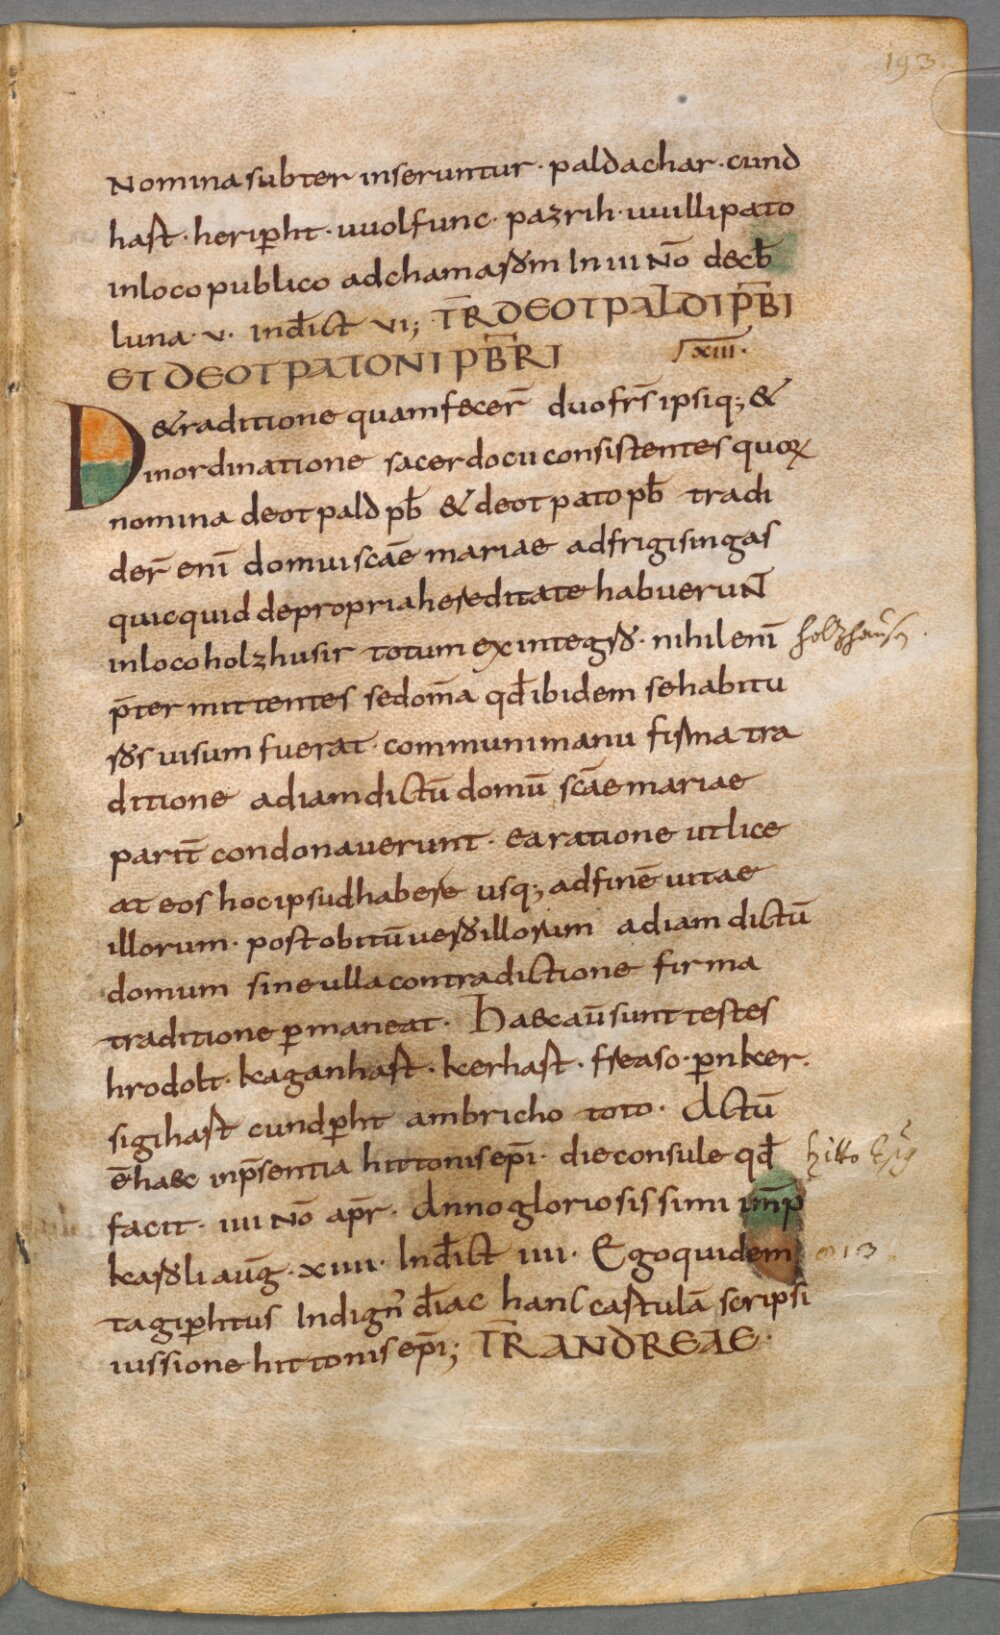 193.
Nomina subter inseruntur · paldachar · cund
hast · heripħt · uuolfunc · pazrih · uuillipato
inloco publico ad chamarōm In iii Nō decb̄
luna · v · indict̄ vi; T̄R DEOTPALDI P̄BI
ET DEOTPATONI PB̄RI xiii ·
De traditione quam fecer̄ duo fr̄s ipsiq; &
inordinatione sacerdocii consistentes quoꝝ
nomina deotpald pb̄ & deotpato pb̄ tradi
der̄ enī domui scāe mariae ad frigisingas
quicquid depropria hereditate habueruN̄
inloco holzhusir totum ex integro · nihil enī holzhausn.
p̄termittentes sed om̄a qd̄ ibidem se habitu
ros uisum fuerat · communi manu firma tra
ditione ad iam dictū domū scāe mariae
parit̄ condonauerunt · ea ratione ut lice
at eos hoc ipsud habere usq; ad finē uitae
illorum · post obitū uero illorum ad iam dictū
domum sine ulla contradictione firma
traditione ꝑmaneat · Haec aū sunt testes
hrodolt · kaganhast · kerhast · freaso · ꝑnker ·
sigihast cundꝑht ambricho toto · Actū
ē haec inp̄sentia hittonis ep̄i · die consule qd̄ hitto Ep̄s
facit · iiii Nō apr̄ · Anno gloriosissimi im̄p
karoli auḡ · xiiii · Indict̄ iiii · Ego quidem 813.
tagiꝑhtus Indign̄ diac̄ hanc cartulā scripsi
iussione hittonis ep̄i; T̄R ANDREAE ·